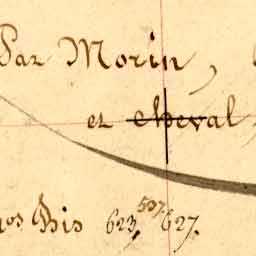 Par Morin,
et cheval,
507.
nos bis 623, 627.